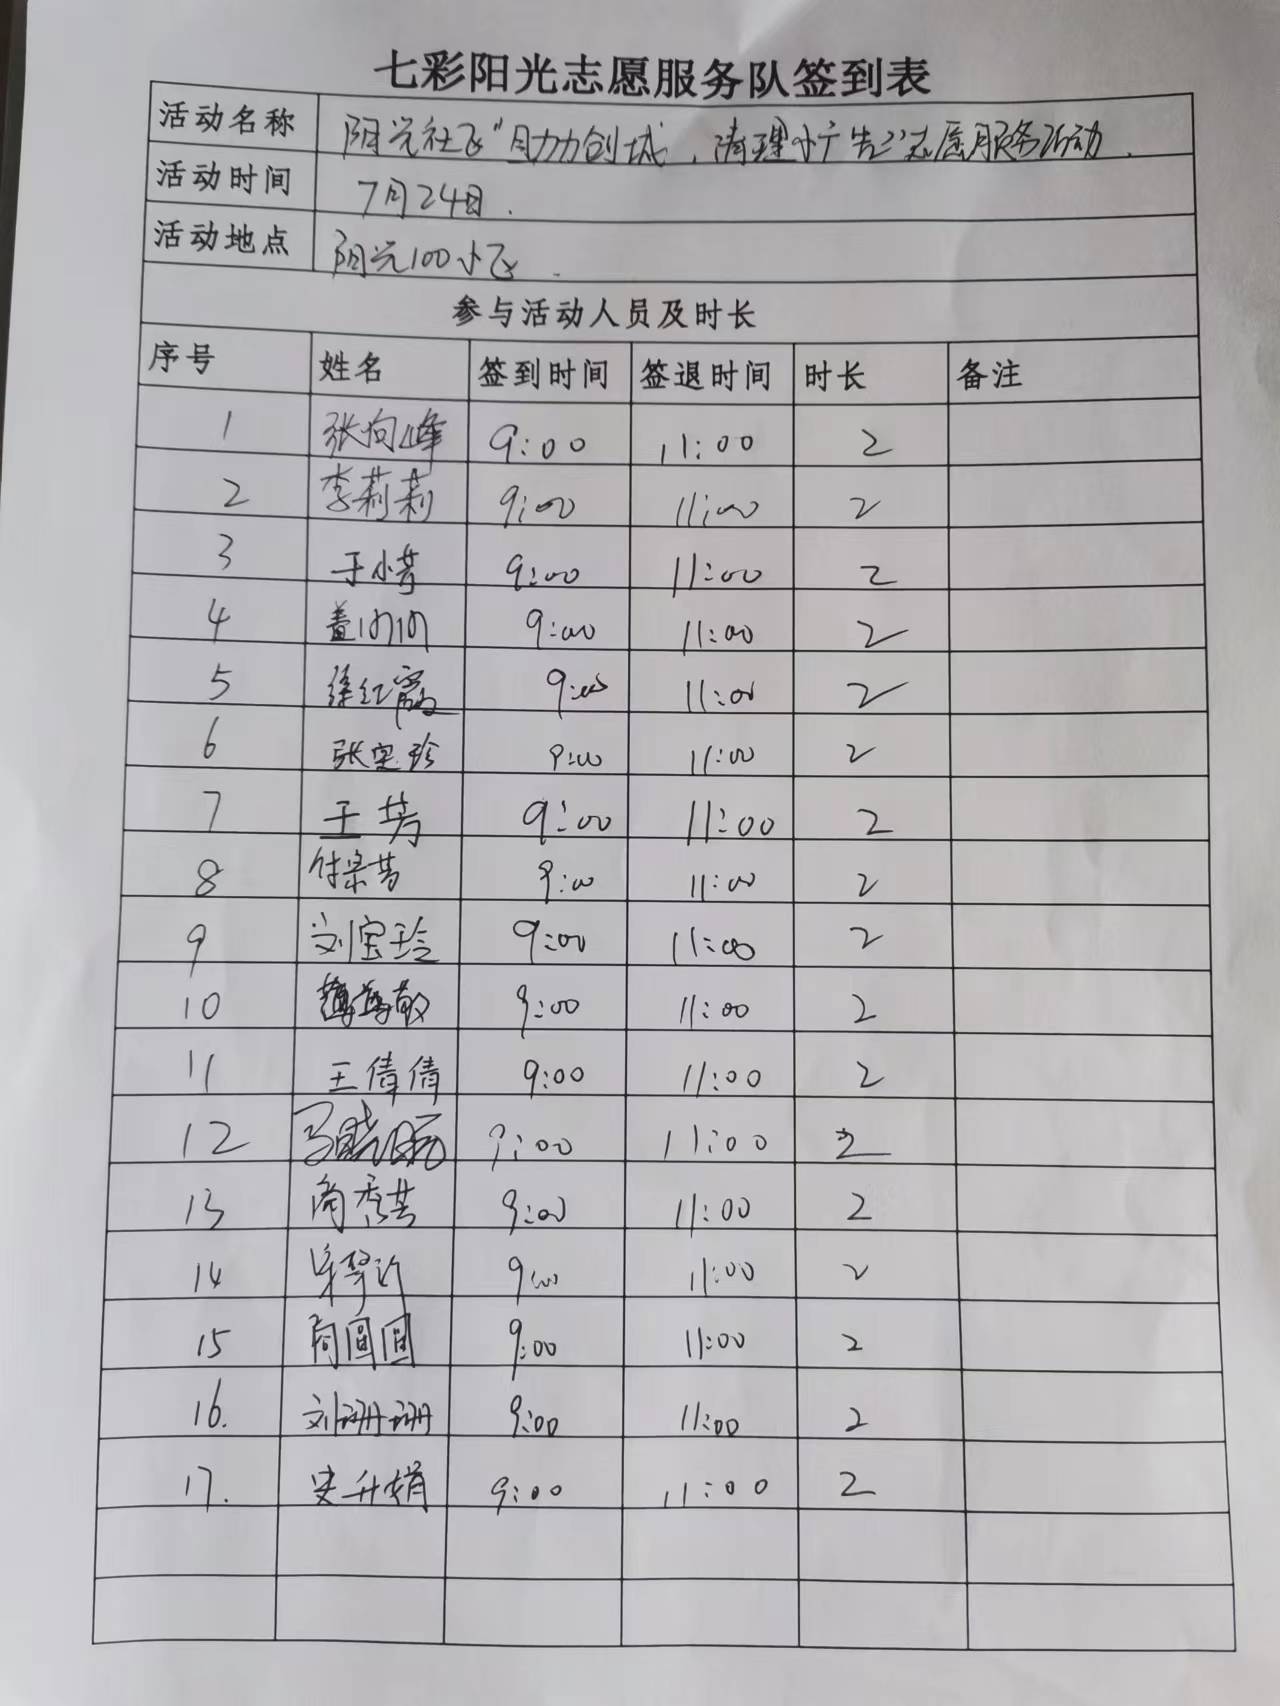 七彩阳光志愿服务队签到表
活动名称 阳光社区"助力创城,清理小广告"志愿服务活动.
活动时间 7月24日.
活动地点 阳光100小区.
参与活动人员及时长
序号 姓名 签到时间 签退时间 时长 备注
1 张向峰 9:00 11:00 2
2 李莉莉 9:00 11:00 2
3 于小芳 9:00 11:00 2
4 9:00 11:00 2
5 徐红霞 9:00 11:00 2
6 张宝珍 9:00 11:00 2
7 王芳 9:00 11:00 2
8 付荣芳 9:00 11:00 2
9 刘宝玲 9:00 11:00 2
10 9:00 11:00 2
11 王倩倩 9:00 11:00 2
12 马晓 9:00 11:00 2
13 9:00 11:00 2
14 9:00 11:00 2
15 周圆圆 9:00 11:00 2
16. 刘珊珊 9:00 11:00 2
17. 史升娟 9:00 11:00 2